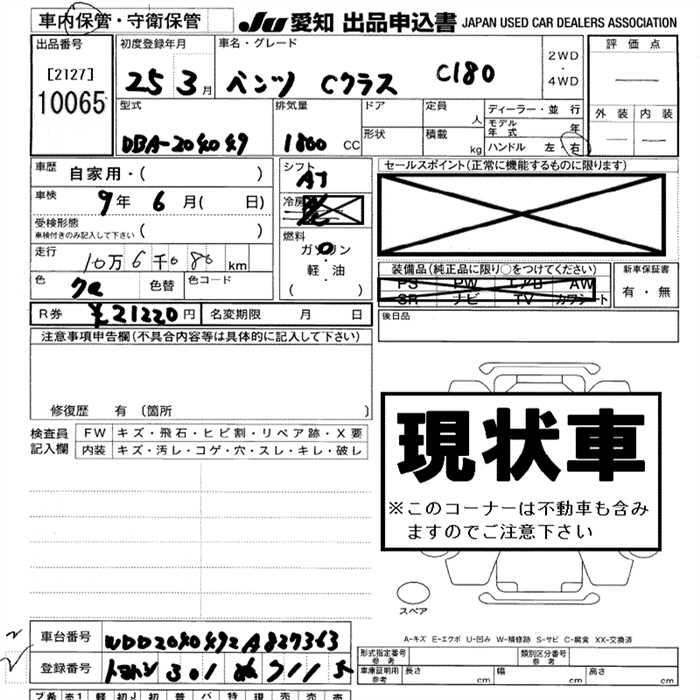 車内保管・守衛保管
JU 愛知 出品申込書 JAPAN USED CAR DEALERS ASSOCIATION
出品番号
[2127]
10065
初度登録年月
25 3月
車名・グレード
ベンツ Cクラス C180
2WD
・
4WD
評価点
外装 内装
型式
DBA-204049
排気量
1800 CC
ドア
形状
定員 人
積載 kg
ディーラー・並 行
モデル年式 年
ハンドル 左・右
車歴 自家用・( )
車検 9年 6月( 日)
受検形態
車検付きのみ記入して下さい ( )
走行 10万 6千0 80 km
色 色替 色コード
R券 ¥21220円 名変期限 月 日
シフト
AT
冷房
燃料
ガソリン
・
軽・油
( )
セールスポイント(正常に機能するものに限ります)
装備品(純正品に限り○をつけてください)
PS PW エアB AW
SR ナビ TV カワシート
新車保証書
有・無
後日品
注意事項申告欄(不具合内容等は具体的に記入して下さい)
修復歴 有 〔箇所 〕
検査員記入欄
FW キズ・飛石・ヒビ割・リペア跡・X要
内装 キズ・汚レ・コゲ・穴・スレ・キレ・破レ
現状車
※このコーナーは不動車も含み
ますのでご注意下さい
スペア
A-キズ E-エクボ U-凹み W-補修跡 S-サビ C-腐食 XX-交換済
車台番号 WDD2040492A827363
登録番号
301
形式指定番号
参考
類別区分番号
参考
車庫証明用
参考
長さ cm 幅 cm 高さ cm